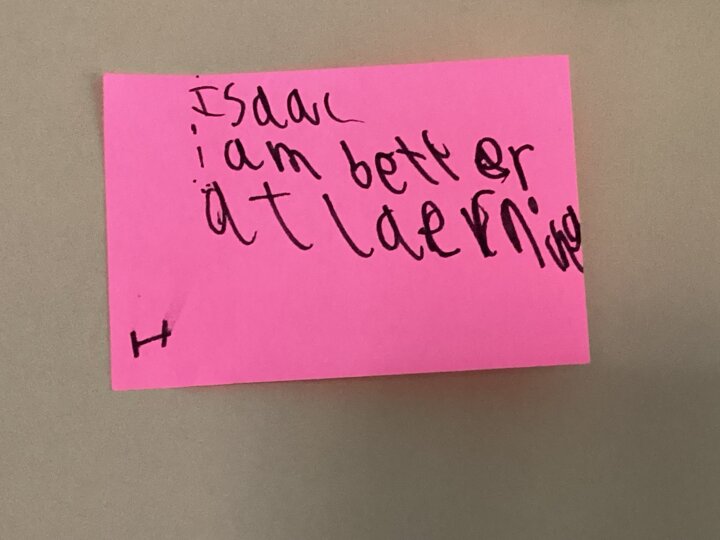 Isaac
i am better
at laerning
I